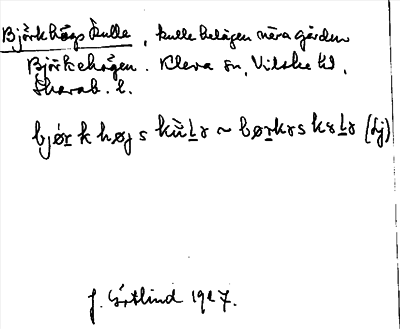 Björkhögs kulle, kulle belägen nära gården
Björkehögen. Kleva sn, Vilske hd,
Skarab. l.
bjørk høgs kùlɤ ~ børkɤs kɤlɤ (Lj)
J. Götlind 1927.